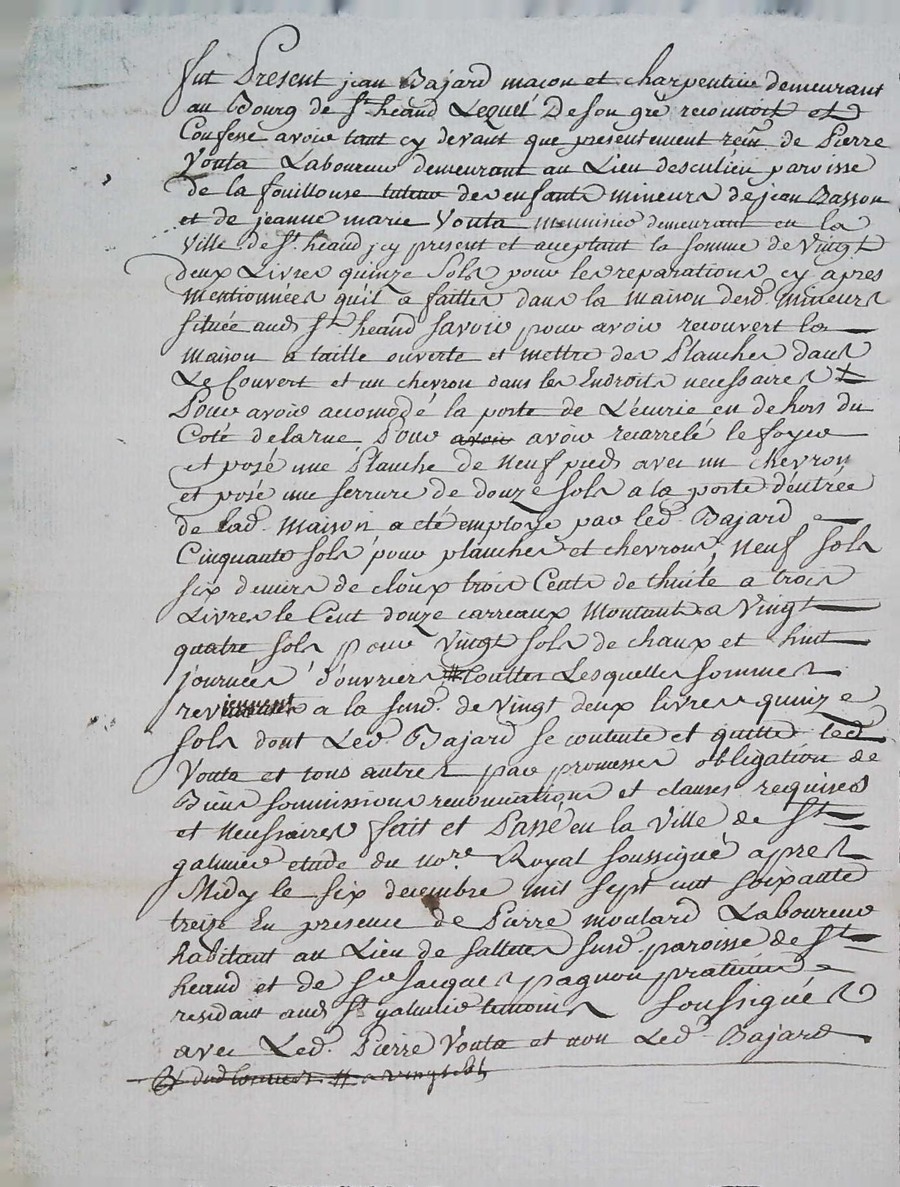 fut Présent jean Bajard macon et charpentier demeurant
au Bourg de St heand Lequel De son gré reconnoit et
Confesse avoir tant cy devant que présentement reçu de Pierre
Vouta Laboureur demeurant au Lieu desculieu paroisse
de la fouillouse tuteur des enfants mineurs de jean Basson
et de jeanne marie Vouta Menuisier demeurant en la
Ville de St. heand jcy present et acceptant la somme de Vingt
deux Livres quinze Sols pour les reparations cy apres
mentionnées qu'il a faittes dans la maison desd. Mineurs
située aud. St heand Savoir pour avoir recouvert la
maison a taille ouverte et mettre des Planches dans
Le Couvert et un chevron dans les Endroits necessaires
Pour avoir accomodé la porte de L'écurie en dehors du
Coté de la rue Pour avoir avoir recarrelé le foyer
et posé une Planche de Neuf pieds avec un chevron
et posé une serrure de douze sols a la porte d'entrée
de lad. Maison a été employé par led. Bajard
Cinquante sols pour planches et chevrons, Neuf sols
six deniers de cloux trois Cents de thuile a trois
Livres le Cent douze carreaux Montants a Vingt
quatre sols pour Vingt sols de chaux et huit
journées d'ouvriers # touttes Lesquelles sommes
reviennent a la susd. de Vingt deux livres quinze
sols dont Led. Bajard se contente et quitte led.
Vouta et tous autres par promesses obligation de
Biens soumissions renonciations et clauses requises
et Necessaires fait et Passé en la Ville de St
galmier etude du nore. Royal soussigné apres
Midy le six decembre mil sept cent soixante
treize En presence de Pierre moulard Laboureur
habitant au Lieu de susd. paroisse de St
heand et de Sr Jacques pagnon praticien
residant aud. St galmier temoins Soussignés
avec Led. Pierre Vouta et non Led. Bajard
# a vingt sols